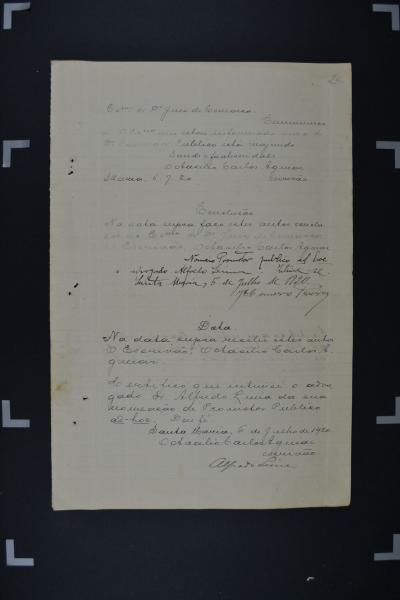 Exmo Sr Dr Juiz de Comarca.
Communico
a V Exa que estou informado que o
Dr Promotor Publico está
Saude e fraternidade
Octacilio Carlos Aguiar
S Maria, 5. 7. 20 Escrivão
Conclusão
Na data supra faço estes autos conclu
sos ao Exmo Sr Dr Juiz de Comarca
O Escrivão, Octacilio Carlos Aguiar
Nomeio Promotor publico ad hoc
o advogado Alfredo Lima
Santa Maria, 5 de Julho de 1920.
Data
Na data supra recebi estes autos
O Escrivão, Octacilio Carlos A
guiar
Certifico que intimei o advo
gado Sr. Alfredo Lima da sua
nomeação de Promotor Publico
ad-hoc, Dou fé.
Santa Maria, 5 de Julho de 1920
Octacilio Carlos Aguiar
escrivão.
Alfredo Lima